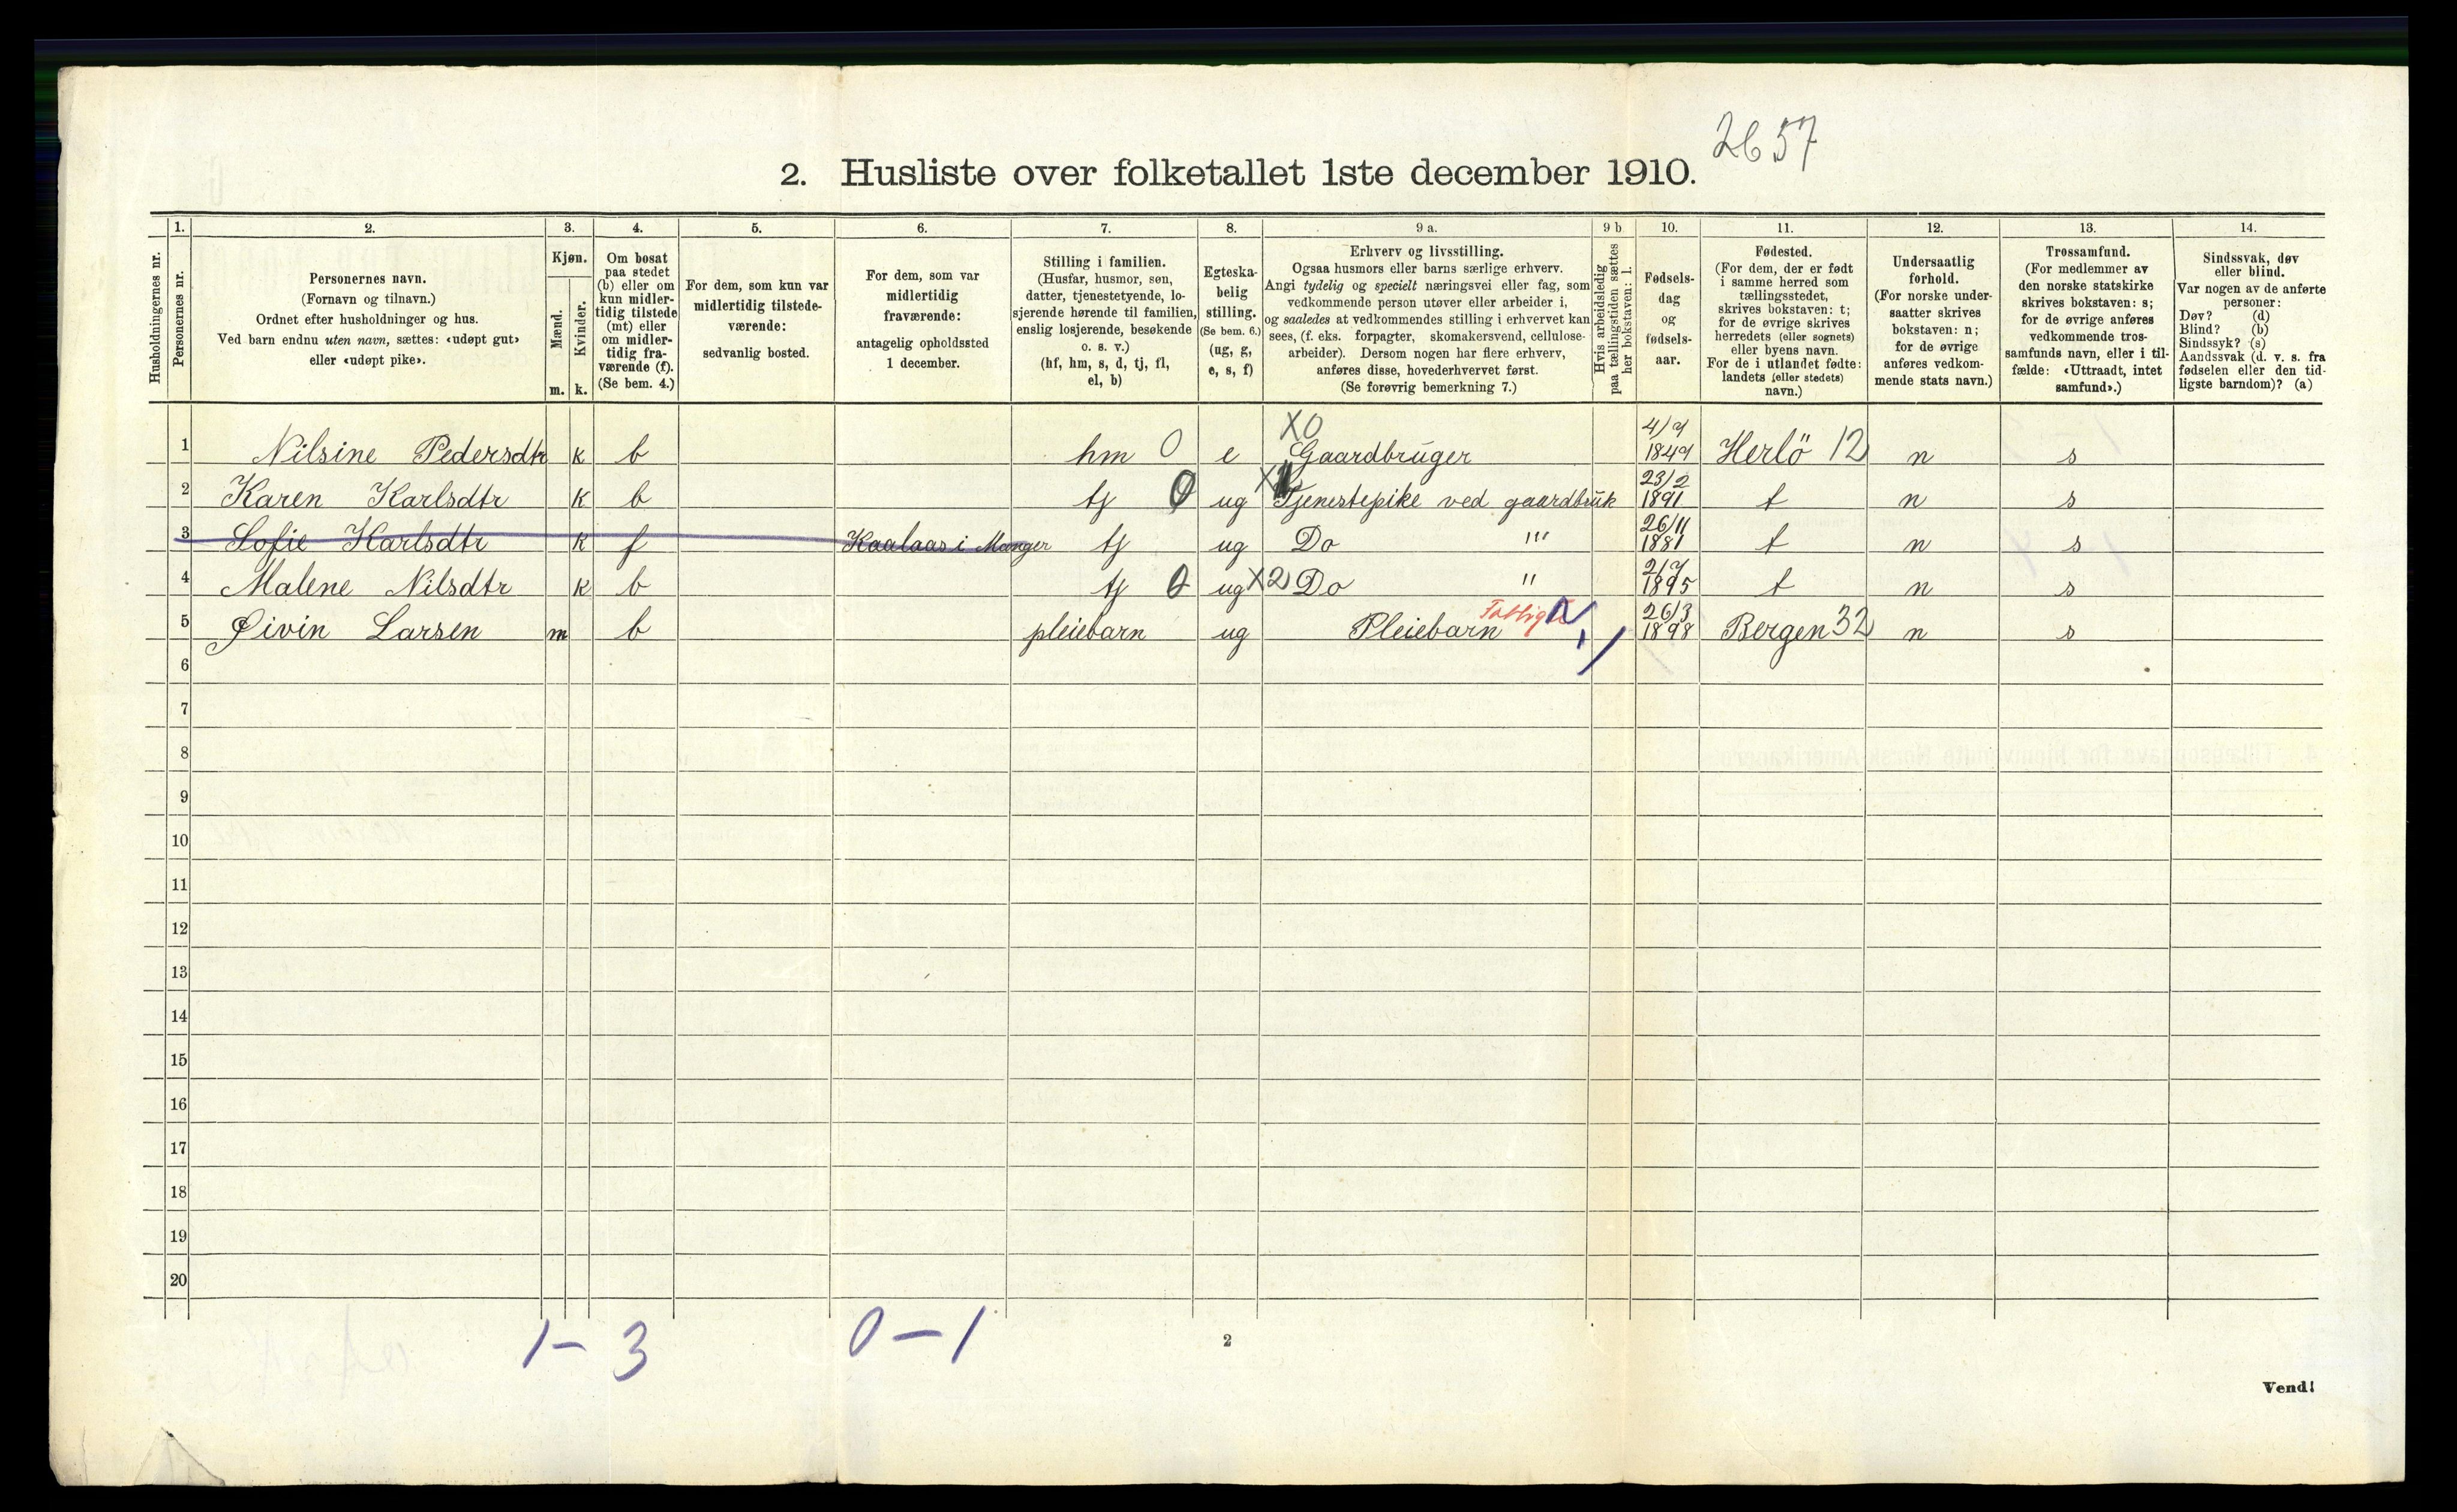 2657
2. Husliste over folketallet 1ste december 1910.
Husholdningernes nr.
1.
Personernes nr.
2.
Personernes navn.
(Fornavn og tilnavn.)
Ordnet efter husholdninger og hus.
Ved barn endnu uten navn, sættes: «udøpt gut»
eller «udøpt pike».
3.
Kjøn.
Mænd.
Kvinder.
m. k.
4.
Om bosat
paa stedet
(b) eller om
kun midler-
tidig tilstede
(mt) eller
om midler-
tidig fra-
værende (f).
(Se bem. 4.)
5.
For dem, som kun var
midlertidig tilstede-
værende:
sedvanlig bosted.
6.
For dem, som var
midlertidig
fraværende:
antagelig opholdssted
1 december.
7.
Stilling i familien.
(Husfar, husmor, søn,
datter, tjenestetyende, lo-
sjerende hørende til familien,
enslig losjerende, besøkende
o. s. v.)
(hf, hm, s, d, tj, fl,
el, b)
8.
Egteska-
belig
stilling.
(Se bem. 6.)
(ug, g,
e, s, f)
9 a.
Erhverv og livsstilling.
Ogsaa husmors eller barns særlige erhverv.
Angi tydelig og specielt næringsvei eller fag, som
vedkommende person utøver eller arbeider i,
og saaledes at vedkommendes stilling i erhvervet kan
sees, (f. eks. forpagter, skomakersvend, cellulose-
arbeider). Dersom nogen har flere erhverv,
anføres disse, hovederhvervet først.
(Se forøvrig bemerkning 7.)
9 b
Hvis arbeidsledig
paa tællingstiden sættes
her bokstaven: l.
10.
Fødsels-
dag
og
fødsels-
aar.
11.
Fødested.
(For dem, der er født
i samme herred som
tællingsstedet,
skrives bokstaven: t;
for de øvrige skrives
herredets (eller sognets)
eller byens navn.
For de i utlandet fødte:
landets (eller stedets)
navn.)
12.
Undersaatlig
forhold.
(For norske under-
saatter skrives
bokstaven: n;
for de øvrige
anføres vedkom-
mende stats navn.)
13.
Trossamfund.
(For medlemmer av
den norske statskirke
skrives bokstaven: s;
for de øvrige anføres
vedkommende tros-
samfunds navn, eller i til-
fælde: «Uttraadt, intet
samfund».)
14.
Sindssvak, døv
eller blind.
Var nogen av de anførte
personer:
Døv? (d)
Blind? (b)
Sindssyk? (s)
Aandssvak (d. v. s. fra
fødselen eller den tid-
ligste barndom)? (a)
1 Nilsine Pedersdtr k b hm 0 e X0 Gaardbruger Herlö 12 n s
2 Karen Karlsdtr k b tj 0 ug Tjenestepike ved gaardbruk 23/2 1891 t n s
3 Sofie Karlsdtr k f Kaalaas i Manger tj ug Do "" 26/11 1881 t n s
4 Malene Nilsdtr k b tj 0 ug X2 Do " 2/7 1895 t n s
5 Øivin Larsen m b pleiebarn ug Pleiebarn 26/3 1898 Bergen 32 n s
6
7
8
9
10
11
12
13
14
15
16
17
18
19
20
1 - 3 0 - 1
2
Vend!